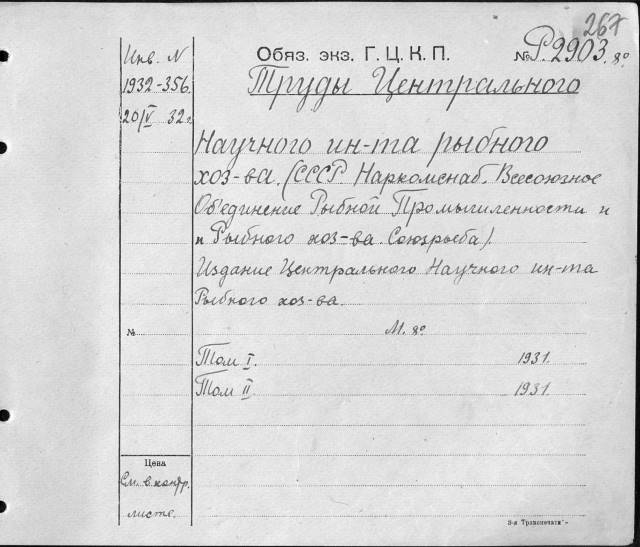 267
Инв. N
1932-356.
20/V 32г.
Обяз. экз. Г.Ц.К.П.
№ Р.2903. 8°.
Труды Центрального
Научного ин-та рыбного
хоз-ва. (СССР. Наркомснаб. Всесоюзное
Об'единение Рыбной Промышленности и
и Рыбного хоз-ва. Союзрыба).
Издание Центрального Научного ин-та
Рыбного хоз-ва.
№
М. 8°
Том I. 1931.
Том II 1931.
Цена
См. в контр.
листе.
3-я Транспечати"-